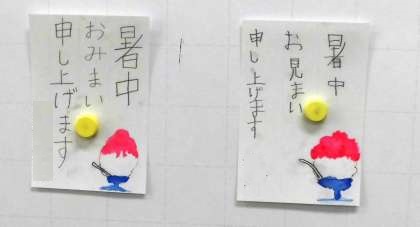 暑中
おみまい
申し上げます
暑中
お見まい
申し上げます